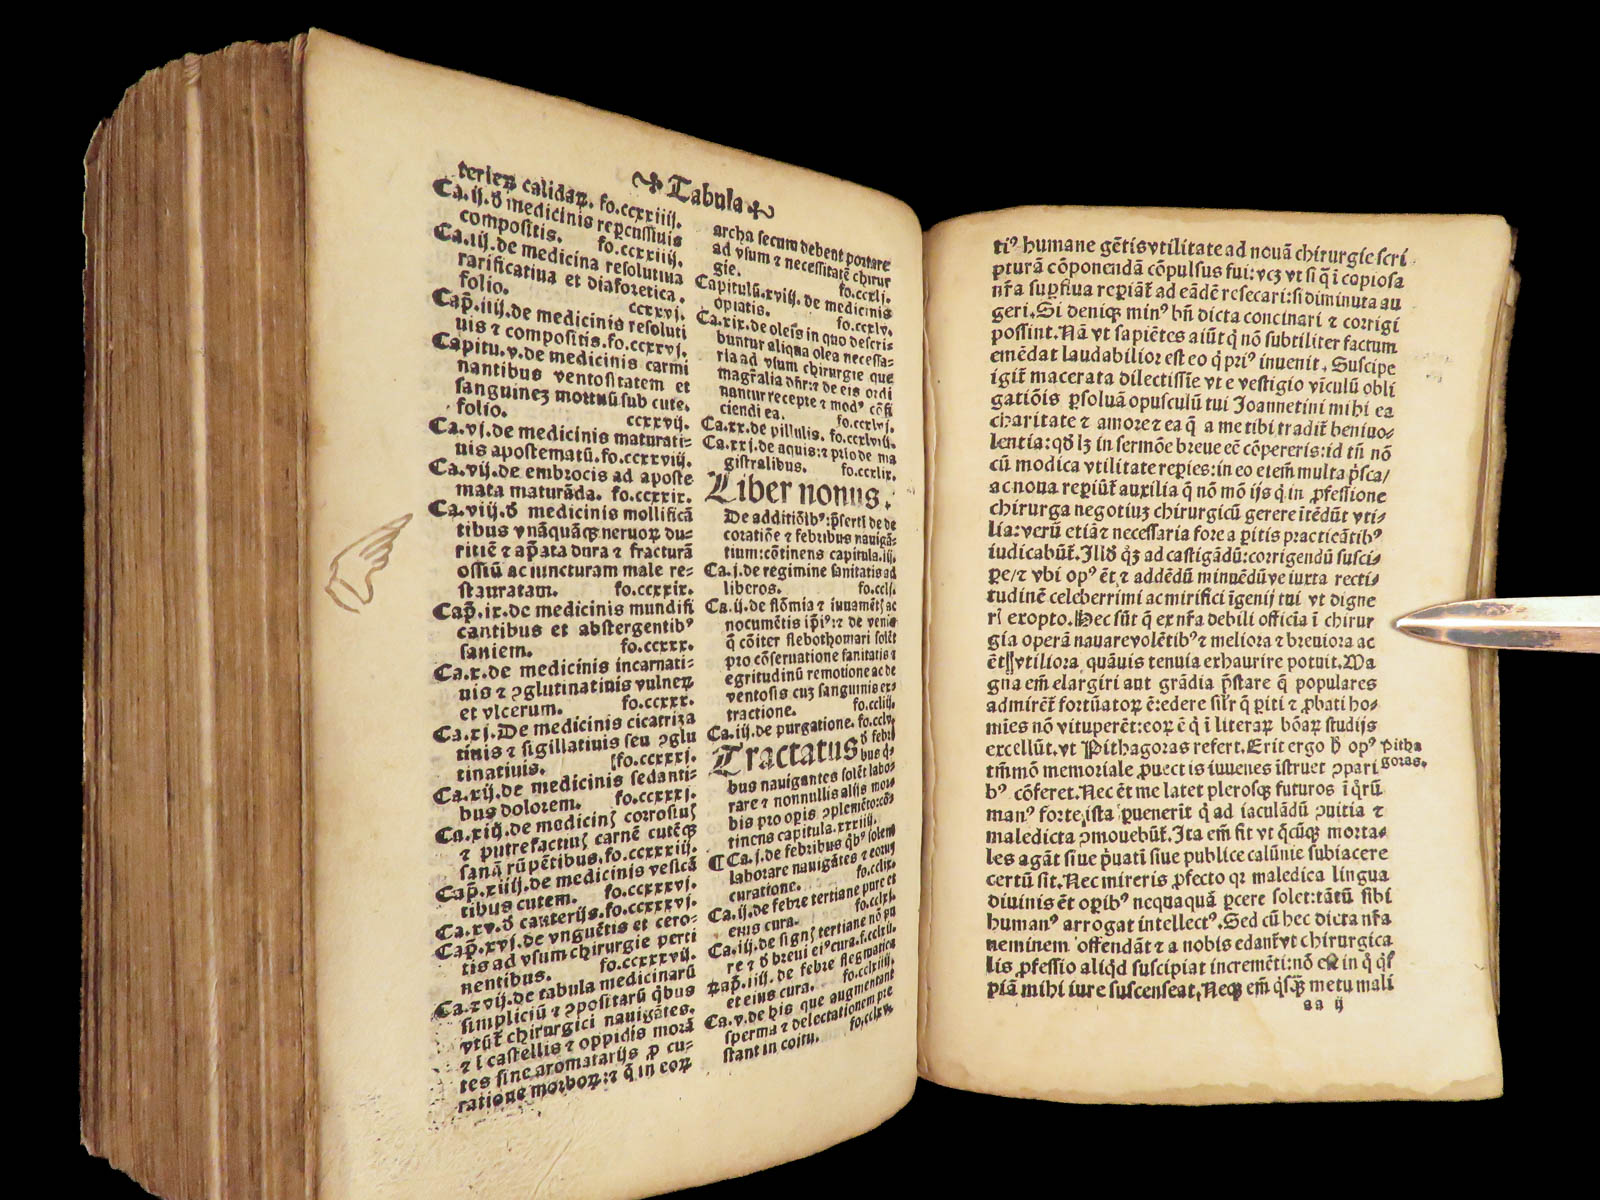 Tabula
teriez calidaꝝ. fo.ccxxiiij.
Ca.ij.ď medicinis repcussiuis
compositis. fo.ccxxiiij.
Ca.iij.de medicina resolutiua
rarificatiua et diaforetica.
folio. ccxxvj.
Cap̄.iiij.de medicinis resoluti
uis ⁊ compositis.fo.ccxxvj.
Capitu.v.de medicinis carmi
nantibus ventositatem et
sanguinez mortuū sub cute.
folio. ccxxvij.
Ca.vj.de medicinis maturati-
uis apostematū.fo.ccxxviij.
Ca.vij.de embrocis ad aposte
mata maturāda. fo.ccxxix.
Ca.viij.ď medicinis mollificā
tibus vnāquāqꝫ neruoꝝ du-
ritiē ⁊ ap̄ata dura ⁊ fracturā
ossiū ac iuncturam male re-
stauratam. fo.ccxxix.
Cap̄.ix.de medicinis mundifi
cantibus et abstergentibꝰ
saniem. fo.ccxxx.
Ca.x.de medicinis incarnati-
uis ⁊ ꝯglutinatiuis vulneꝝ
et vlcerum. fo.ccxxx.
Ca.xj.De medicinis cicatriza
tiuis ⁊ sigillatiuis seu ꝯglu
tinatiuis. fo.ccxxxj.
Ca.xij.de medicinis sedanti-
bus dolorem. fo.ccxxxj.
Ca.xiij.de medicinꝭ corrosiuꝭ
⁊ putrefactiuꝭ carnē cutēqꝫ
sanā rūpētibus.fo.ccxxxiij.
Cap̄.xiiij.de medicinis vesicā
tibus cutem. fo.ccxxxvj.
Ca.xv.ď cauterijs.fo.ccxxxvj.
Cap̄.xvj.de vnguētis et cero-
tis ad vsum chirurgie perti
nentibus. fo.ccxxxvij.
Ca.xvij.de tabula medicinarū
simpliciū ⁊ ꝯpositarū q̄bus
vtūt̄ chirurgici nauigātes.
⁊ ī castellis ⁊ oppidis morā
tes sine aromatarijs ꝓ cu-
ratione morboꝝ:⁊ q̄ in eoꝝ
archa secum debent portare
ad vsum ⁊ necessitatē chirur
gie. fo.ccxlj.
Capitulū.xviij. de medicinis
opiatis. fo.ccxlv.
Ca.xix.de oleis in quo descri-
buntur aliqua olea necessa-
ria ad vsum chirurgie que
magr̄alia dn̄r:⁊ de eis ordi
nantur recepte ⁊ modꝰ cōfi
ciendi ea. fo.ccxlvj.
Ca.xx.de pillulis. fo.ccxlviij.
Ca.xxj.de aquis:⁊ prīo de ma
gistralibus. fo.ccxlix.
Liber nonus.
De additiōibꝰ:p̄serti de de
coratiōe ⁊ febribus nauigā-
tium:cōtinens capitula.iij.
Ca.j.de regimine sanitatis ad
liberos. fo.cclj.
Ca.ij.de flōmia ⁊ iuuamētꝭ ac
nocumētis ip̄iꝰ:⁊ de venis
q̄ cōiter flebothomari solēt
pro cōseruatione sanitatis ⁊
egritudinū remotione ac de
ventosis cuꝫ sanguinis ex-
tractione. fo.ccliij.
Ca.iij.de purgatione. fo.cclv.
Tractatus ď febri
bus q̄-
bus nauigantes solēt labo-
rare ⁊ nonnullis alijs mor-
bis pro opis ꝯplemēto:cō-
tinens capitula.xxxiiij.
Ca.j.de febribus q̄bꝰ solent
laborare nauigātes ⁊ eorum
curatione. fo.cclix.
Ca.ij.de febre tertiane pure et
eius cura. fo.cclxj.
Ca.iij.de signꝭ tertiane nō pu
re ⁊ ď breui eiꝰ cura.f.cclxij.
Cap̄.iiij. de febre flegmatica
et eius cura. fo.cclxiiij.
Ca.v.de his que augmentant
sperma ⁊ delectationem pre
stant in coitu. fo.cclxv.
tiꝰ humane gētis vtilitate ad nouā chirurgie scri
pturā cōponendā cōpulsus fui:vcꝫ vt si q̄ ī copiosa
nr̄a sup̄flua repiāt̄ ad eādē resecari:si diminuta au
geri. Si deniqꝫ minꝰ bn̄ dicta concinari ⁊ corrigi
possint. Nā vt sapiētes aiūt q̇ nō subtiliter factum
emēdat laudabilior est eo q̇ priꝰ inuenit. Suscipe
igit̄ macerata dilectissīe vt e vestigio vīculū obli
gatiōis ꝑsoluā opusculū tui Joannetini mihi ea
charitate ⁊ amore ⁊ ea q̄ a me tibi tradit̄ beniuo-
lentia:qď lꝫ in sermōe breue eē cōpereris:id tn̄ nō
cū modica vtilitate repies:in eo etem̄ multa p̄sca/
ac noua repiūt̄ auxilia q̄ nō mō ijs q̇ in ꝓfessione
chirurga negotiuꝫ chirurgicū gerere ītēdūt vti-
lia:verū etiā ⁊ necessaria fore a pitis practicātibꝰ
iudicabūt̄. Jllď qꝫ ad castigādū:corrigendū susci-
pe/⁊ vbi opꝰ ēt ⁊ addēdū minuēdūve iuxta recti-
tudinē celeberrimi ac mirifici īgenij tui vt digne
rꝭ exopto. Hec sūt q̄ ex nr̄a debili officia ī chirur
gia operā nauare volētibꝰ ⁊ meliora ⁊ breuiora ac
ēt vtiliora quāuis tenuia exhaurire potuit. Ma
gna em̄ elargiri aut grādia p̄stare q̄ populares
admirēt̄ fortūatoꝝ ē:edere sil̄r q̄ piti ⁊ ꝓbati ho-
mīes nō vituperēt:eoꝝ ē q̇ ī literaꝝ bōaꝝ studijs
excellūt. vt Pithagoras refert. Erit ergo ħ opꝰ
Pitha
goras.
tm̄mō memoriale ꝓuectis iuuenes īstruet ꝯpari
bꝰ cōferet. Nec ēt me latet plerosqꝫ futuros ī q̇rū
manꝰ forte ista puenerīt q̇ ad iaculādū ꝯuitia ⁊
maledicta ꝯmouebūt̄. Jta em̄ fit vt q̄cūqꝫ morta-
les agāt siue ṗuati siue publice calūnie subiacere
certū sit. Nec mireris ꝓfecto qꝛ maledica lingua
diuinis ēt opibꝰ nequaquā pcere solet:tātū sibi
humanꝰ arrogat intellectꝰ. Sed cū hec dicta nr̄a
neminem offendāt ⁊ a nobis edant̄ vt chirurgica
lis ꝓfessio aliqď suscipiat incremēti:nō est in q̇ q̇s
piā mihi iure suscenseat. Neqꝫ em̄ q̇sqꝫ metu mali
aa ij